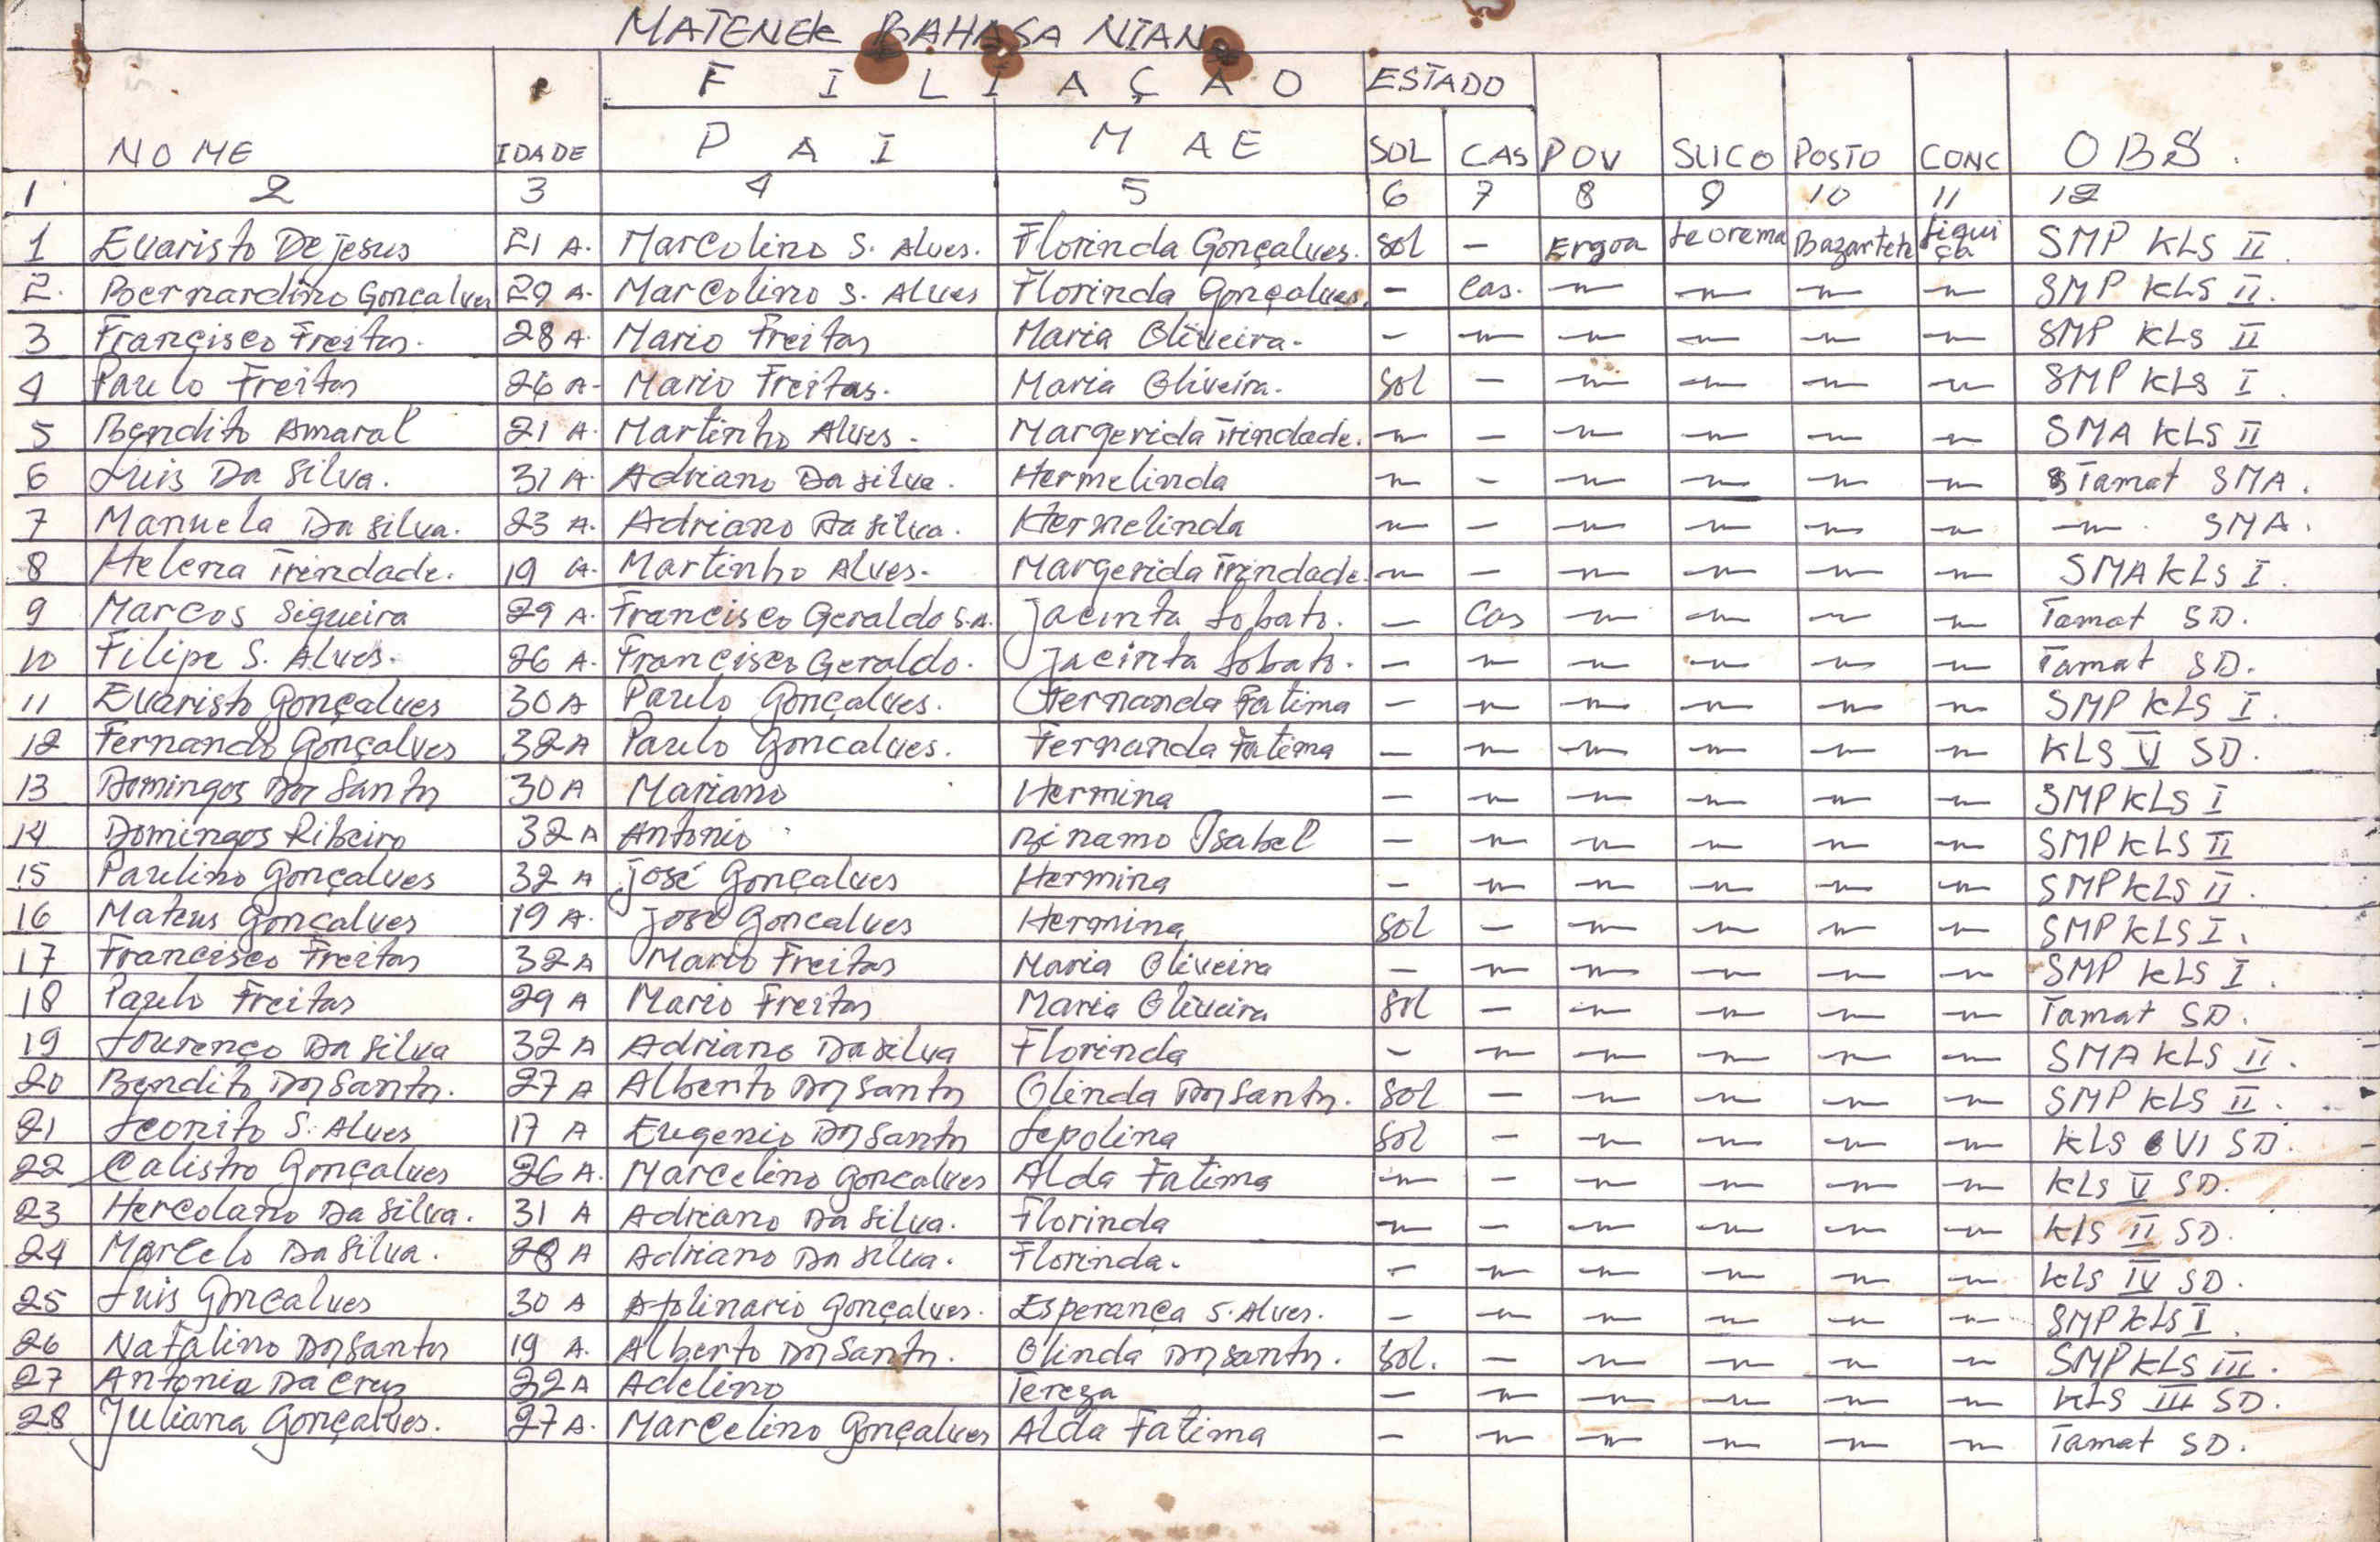 MATENEK BAHASA NIAN
FILIAÇAO ESTADO
NOME IDADE PAI MAE SOL CAS POV SUCO POSTO CONC OBS.
1 2 3 4 5 6 7 8 9 10 11 12
1 Evaristo De jesus 21 A. Marcolino S. Alves. Florinda Gonçalves. Sol - Ergoa Leorema Bazartete Liquiça SMP KLS II.
2. Bernardino Goncalves 29 A. Marcolino S. Alves Florinda Gonçalves. - Cas. ~ ~ ~ ~ SMP KLS II.
3 Francisco Freitas. 28 A. Mario Freitas Maria Oliveira. - ~ ~ ~ ~ ~ SMP KLS II
4 Paulo Freitas 26 A- Mario Freitas. Maria Oliveira. Sol - ~ ~ ~ ~ SMP KLS I.
5 Bendito Amaral 21 A. Martinho Alves. Margerida Trindade. ~ - ~ ~ ~ ~ SMA KLS II
6 Luis Da Silva. 31 A. Adriano Da silva. Hermelinda ~ - ~ ~ ~ ~ Tamat SMA.
7 Manuela Da silva. 23 A. Adriano Da silva. Hermelinda ~ - ~ ~ ~ ~ ~ SMA.
8 Helena Trindade. 19 A. Martinho Alves. Margerida Trindade. ~ - ~ ~ ~ ~ SMA KLS I.
9 Marcos Siqueira 29 A. Francisco Geraldo S.A. Jacinta Lobato. - Cas ~ ~ ~ ~ Tamat SD.
10 Filipe S. Alves. 26 A. Francisco Geraldo. Jacinta Lobato. - ~ ~ ~ ~ ~ Tamat SD.
11 Evaristo Gonçalves 30 A Paulo Gonçalves. Fernanda Fatima - ~ ~ ~ ~ ~ SMP KLS I.
12 Fernando Gonçalves 32 A Paulo Goncalves. Fernanda Fatima - ~ ~ ~ ~ ~ KLS V SD.
13 Domingos Dos Santos 30 A Mariano Hermina - ~ ~ ~ ~ ~ SMP KLS I
14 Domingos Ribeiro 32 A Antonio Binamo Isabel - ~ ~ ~ ~ ~ SMP KLS II
15 Paulino Gonçalves 32 A José Gonçalves Hermina - ~ ~ ~ ~ ~ SMP KLS II.
16 Mateus Gonçalves 19 A. José Goncalves Hermina Sol - ~ ~ ~ ~ SMP KLS I.
17 Francisco Freitas 32 A Mario Freitas Maria Oliveira - ~ ~ ~ ~ ~ SMP KLS I.
18 Paulo Freitas 29 A Mario Freitas Maria Oliveira Sol - ~ ~ ~ ~ Tamat SD.
19 Lourenço Da silva 32 A Adriano Da silva Florinda - ~ ~ ~ ~ ~ SMA KLS II.
20 Bendito Dos Santos. 27 A Alberto Dos Santos Olinda Dos Santos. Sol - ~ ~ ~ ~ SMP KLS II.
21 Leonito S. Alves 17 A Eugenio Dos Santos Lepolina Sol - ~ ~ ~ ~ KLS VI SD.
22 Calistro Gonçalves 26 A. Marcelino Goncalves Alda Fatima ~ - ~ ~ ~ ~ KLS V SD.
23 Hercolano Da Silva. 31 A Adriano Da Silva. Florinda ~ - ~ ~ ~ ~ KLS II SD.
24 Marcelo Da Silva. 28 A Adriano Da silva. Florinda. - ~ ~ ~ ~ ~ KLS IV SD.
25 Luis Goncalves 30 A Apolinario Gonçalves. Esperança S. Alves. - ~ ~ ~ ~ ~ SMP KLS I.
26 Natalino Dos Santos 19 A. Alberto Dos Santos. Olinda Dos Santos. Sol. - ~ ~ ~ ~ SMP KLS III.
27 Antonia Da Cruz 22 A Adelino Tereza - ~ ~ ~ ~ ~ KLS III SD.
28 Juliana Gonçalves. 27 A. Marcelino Gonçalves Alda Fatima - ~ ~ ~ ~ ~ Tamat SD.